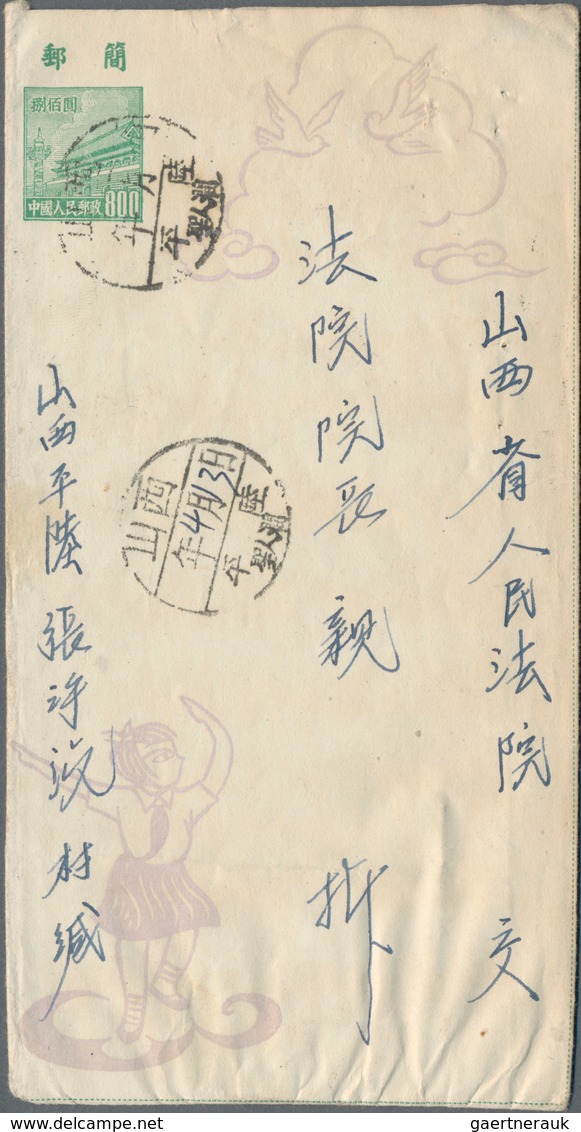 郵簡
捌佰圓
中國人民郵政 800
山西省人民法院 交
法院院長 親 拆
山西
年4月13日
平陸
聖人澗
山西平陸張 村緘
gaertnerauk
delcampe.net